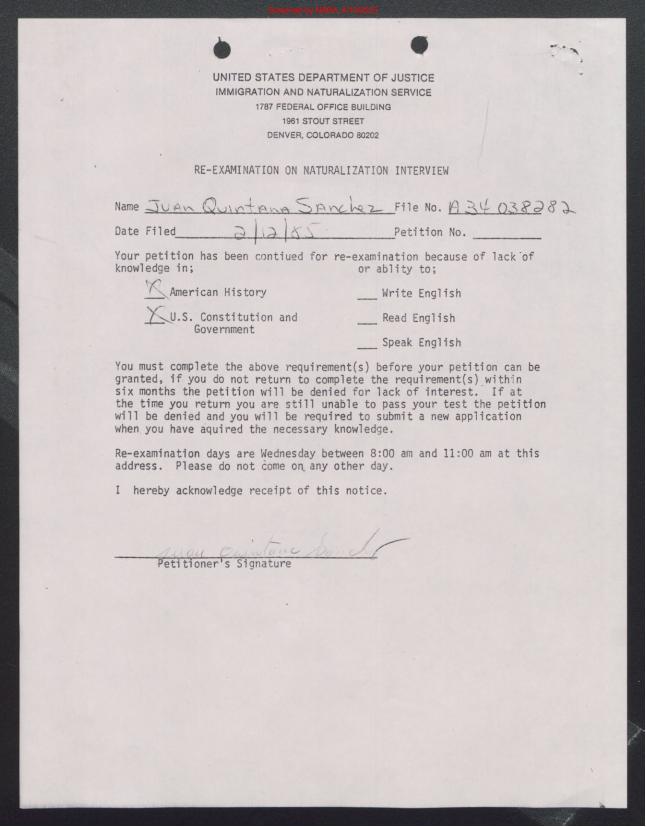 UNITED STATES DEPARTMENT OF JUSTICE
IMMIGRATION AND NATURALIZATION SERVICE
1787 FEDERAL OFFICE BUILDING
1961 STOUT STREET
DENVER, COLORADO 80202
RE-EXAMINATION ON NATURALIZATION INTERVIEW
Name Juan Quintana Sanchez File No. A34 038282
Date Filed 2/12/85 Petition No.
Your petition has been contiued for re-examination because of lack of
knowledge in; or ablity to;
X American History Write English
X U.S. Constitution and Read English
Government
Speak English
You must complete the above requirement(s) before your petition can be
granted, if you do not return to complete the requirement(s) within
six months the petition will be denied for lack of interest. If at
the time you return you are still unable to pass your test the petition
will be denied and you will be required to submit a new application
when you have aquired the necessary knowledge.
Re-examination days are Wednesday between 8:00 am and 11:00 am at this
address. Please do not come on any other day.
I hereby acknowledge receipt of this notice.
Juan Quintana Sanchez
Petitioner's Signature